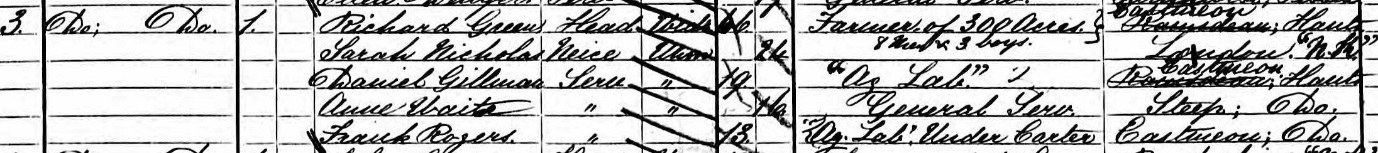 3. Do; Do. 1. Richard Green Head Wid 66 Farmer of 300 Acres Eastmeon Ramsdean; Hants
Sarah Nicholas Neice Unm 24 8 Men & 3 boys. London. "N.K."
Daniel Gillman Serv " 19 "Ag Lab" Eastmeon Ramsdean; Hants
Anne Waite " " 16 General Serv. Steep; Do.
Frank Rogers. " 13 "Ag. Lab" Under Carter Eastmeon; Do.